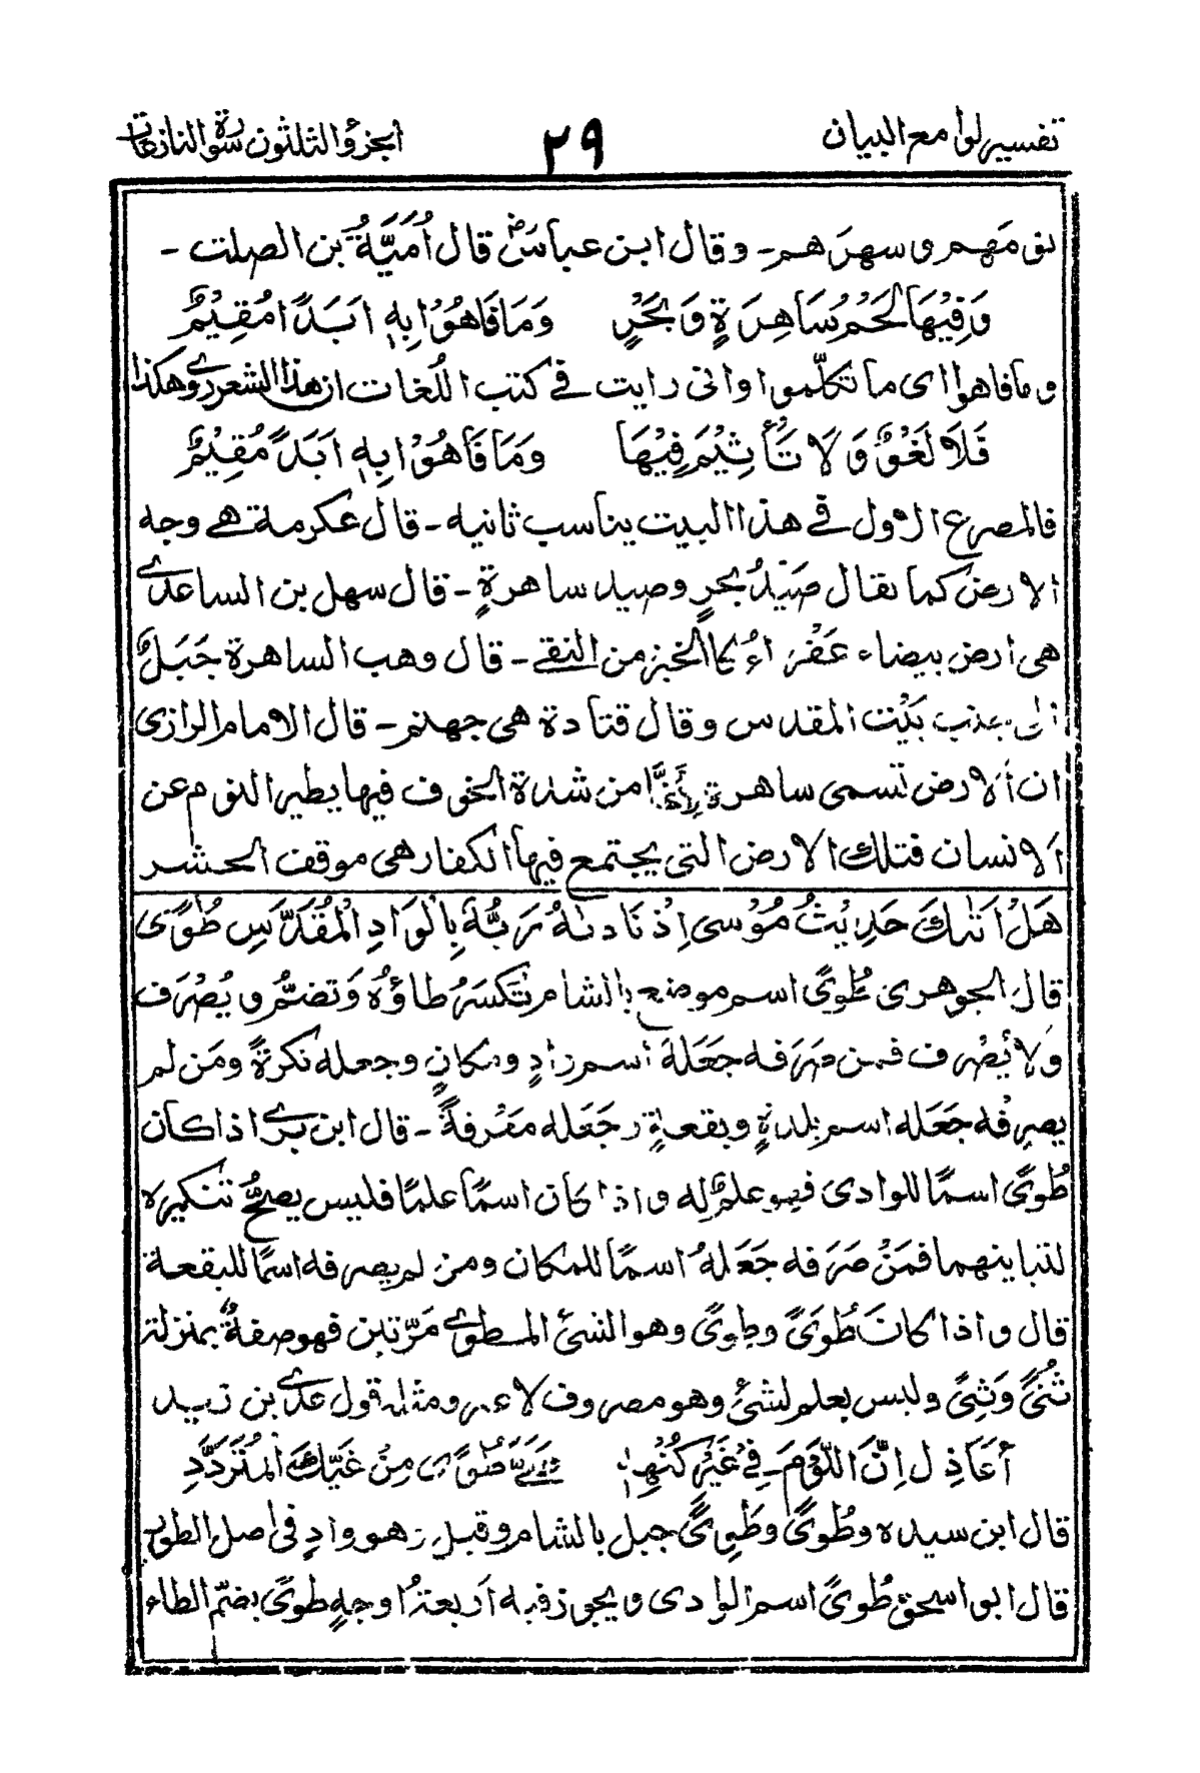 تفسير لوامع البيان ٢٩ الجزؤ الثلثون سورة النازعات
نومهم و سهرهم ـ وقال ابن عباسؓ قال أُمَيَّةُ بن الصلت ـ
وَفِيْهَا لَحْمُ سَاهِرَةٍ وَبَحْرٍ وَمَا فَاهُوْا بِهٖ اَبَدًا مُقِيْمٌ
وما فاهوا اى ما تكلّموا وانى رايت فى كتب اللّغات ان هذا الشعر روى هكذا
فَلَا لَغْوٌ وَلَا تَأْثِيْمَ فِيْهَا وَمَا فَاهُوْا بِهٖ اَبَدًا مُقِيْمٌ
فالمصرع الاول فى هذا البيت يناسب ثانيه ـ قال عكرمة هے وجه
الارض كما يقال صَيْدُ بحرٍ وصيد ساهرةٍ ـ قال سهل بن الساعدى
هى ارض بيضاء عَفْرَاءُ كالخبز من النقى ـ قال وهب الساهرة جَبَلٌ
الى جنب بَيْت المقدس وقال قتادة هى جهنم ـ قال الامام الرازى
ان الارض تسمى ساهرة لِأَنَّ من شدة الخوف فيها يطير النوم عن
الانسان فتلك الارض التى يجتمع فيها الكفار هى موقف الحشر
هَلْ اَتٰكَ حَدِيْثُ مُوْسى اِذْ نَادٰىهُ رَبُّهٗ بِالْوَادِ الْمُقَدَّسِ طُوًى
قال الجوهرى طُوًى اسم موضع بالشام تكسَرُ طاؤُهٗ وَتضمُّ و يُصْرَف
وَلا يُصْرف فمن صَرَفه جَعَلَهٗ اسم وادٍ ومكانٍ وجعله نكرةً ومَن لم
يصرفه جَعَله اسم بلدةٍ وبقعةٍ وجَعَله مَعْرفةً ـ قال ابن برى اذا كان
طُوًى اسمًا للوادى فهو علمٌ له واذا كان اسمًا علمًا فليس يصحُّ تنكيره
لتباينهما فمَنْ صَرَفه جَعَلهٗ اسمًا للمكان ومن لم يصرفه اسمًا للبقعة
قال واذا كانَ طُوًى وطِوًى وهو الشئ المطوى مَرّتين فهو صفةٌ بمنزلة
ثُنًى وَثِنًى وليس بعلم لشئ وهو مصروف لا غير ومثله قول عدى بن زيد
أعَاذِل اِنَّ اللَّوْمَ فِيْ غَيْرِ كُنْهِهٖ طُوًى مِنْ غَيِّكِ الْمُتَرَدَّدِ
قال ابن سيده وطُوًى وطِوًى جبل بالشام وقيل هو وادٍ فى اصل الطور
قال ابو اسحق طُوًى اسم الوادى و يجوز فيه اَربعةُ اوجهٍ طوًى بضمّ الطاء